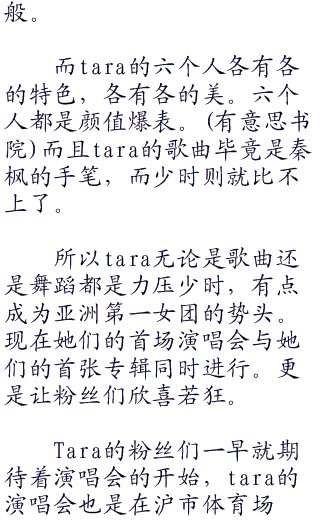 般。
而tara的六个人各有各
的特色，各有各的美。六个
人都是颜值爆表。(有意思书
院)而且tara的歌曲毕竟是秦
枫的手笔，而少时则就比不
上了。
所以tara无论是歌曲还
是舞蹈都是力压少时，有点
成为亚洲第一女团的势头。
现在她们的首场演唱会与她
们的首张专辑同时进行。更
是让粉丝们欣喜若狂。
Tara的粉丝们一早就期
待着演唱会的开始，tara的
演唱会也是在沪市体育场